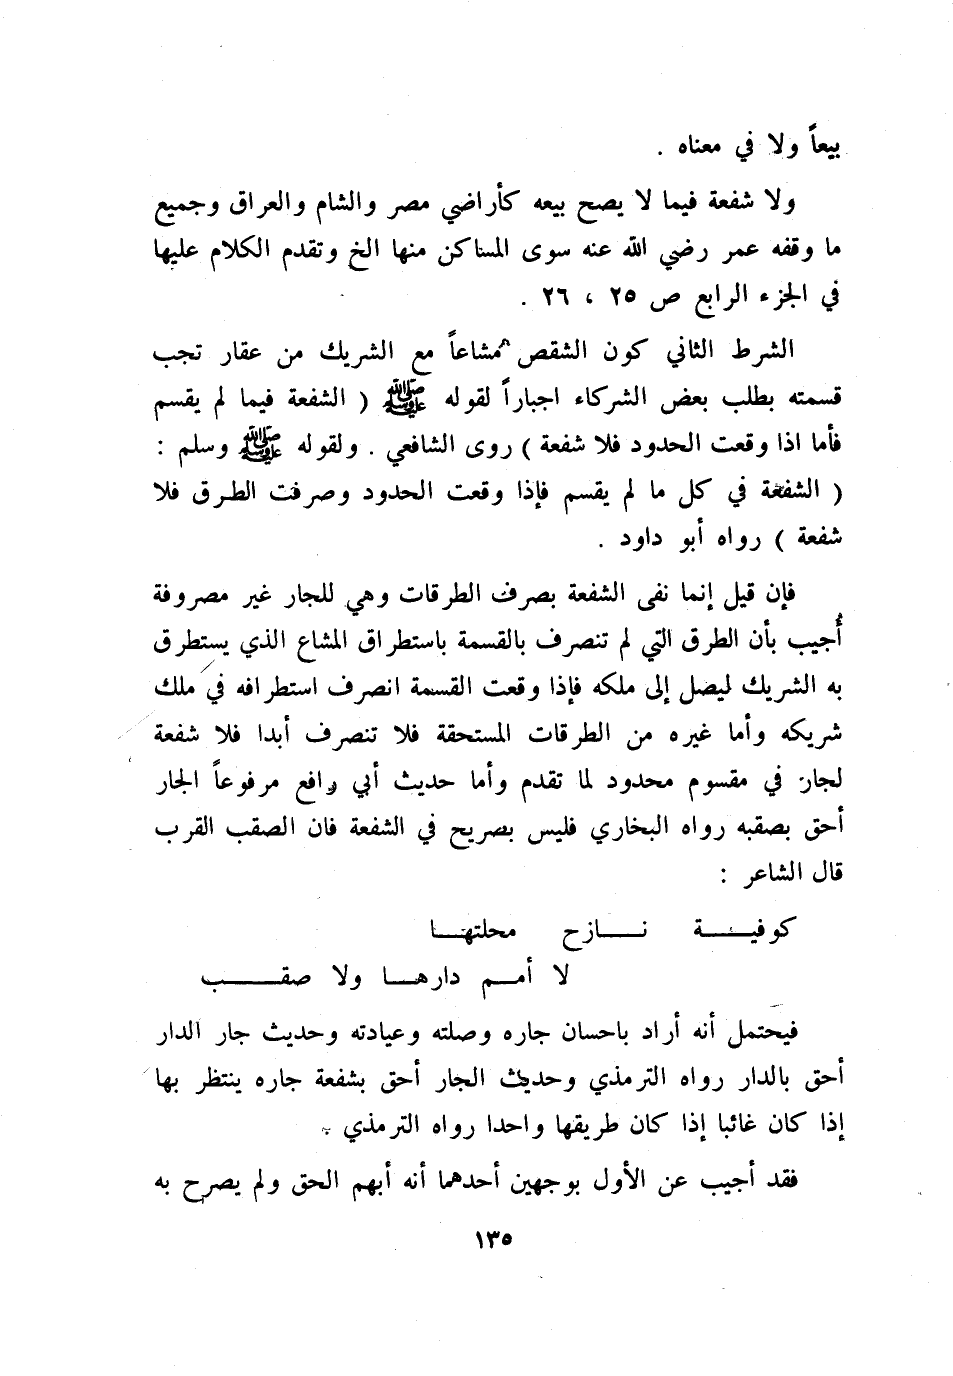 بيعاً ولا في معناه .
ولا شفعة فيما لا يصح بيعه كأراضي مصر والشام والعراق وجميع
ما وقفه عمر رضي الله عنه سوى المساكن منها الخ وتقدم الكلام عليها
في الجزء الرابع ص ٢٥ ، ٢٦ .
الشرط الثاني كون الشقص مشاعاً مع الشريك من عقار تجب
قسمته بطلب بعض الشركاء اجباراً لقوله ﷺ ( الشفعة فيما لم يقسم
فأما اذا وقعت الحدود فلا شفعة ) روى الشافعي . ولقوله ﷺ وسلم :
( الشفعة في كل ما لم يقسم فإذا وقعت الحدود وصرفت الطرق فلا
شفعة ) رواه أبو داود .
فإن قيل إنما نفى الشفعة بصرف الطرقات وهي للجار غير مصروفة
أُجيب بأن الطرق التي لم تنصرف بالقسمة باستطراق المشاع الذي يستطرق
به الشريك ليصل إلى ملكه فإذا وقعت القسمة انصرف استطرافه في ملك
شريكه وأما غيره من الطرقات المستحقة فلا تنصرف أبدا فلا شفعة
لجار في مقسوم محدود لما تقدم وأما حديث أبي رافع مرفوعاً الجار
أحق بصقبه رواه البخاري فليس بصريح في الشفعة فان الصقب القرب
قال الشاعر :
كوفيـــة نـــازح محلتهـــا
لا أمـــم دارهـــا ولا صقـــب
فيحتمل أنه أراد باحسان جاره وصلته وعيادته وحديث جار الدار
أحق بالدار رواه الترمذي وحديث الجار أحق بشفعة جاره ينتظر بها
إذا كان غائبا إذا كان طريقها واحدا رواه الترمذي .
فقد أجيب عن الأول بوجهين أحدهما أنه أبهم الحق ولم يصرح به
١٣٥